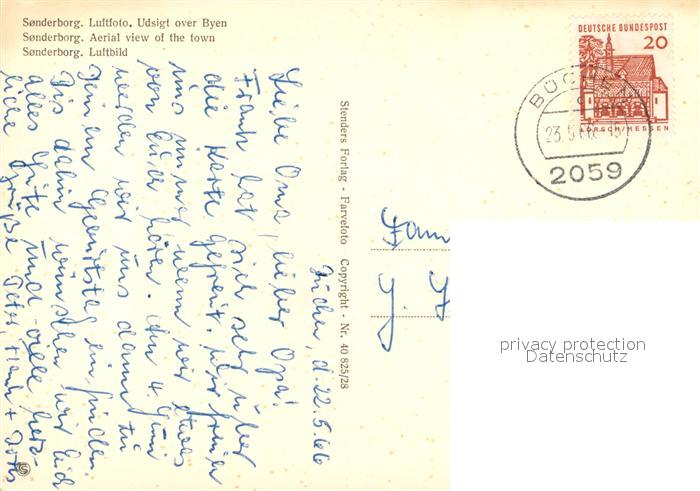 Sønderborg. Luftfoto. Udsigt over Byen
Sønderborg. Aerial view of the town
Sønderborg. Luftbild
DEUTSCHE BUNDESPOST
20
LORSCH/HESSEN
2059
Stenders Forlag - Farvefoto Copyright - Nr. 40 825/28
d. 22.5.66
Liebe Oma, lieber Opa!
Frank hat sich sehr über
die Karte gefreut. Wir freuen
uns immer wenn wir etwas
von Euch hören. Am 4. Juni
werden wir uns dann zu
Geburtstag einfinden.
Bis dahin wünschen wir Euch
alles Gute und viele herz-
liche Grüße Peter, Frank +
Fam
J.
privacy protection
Datenschutz